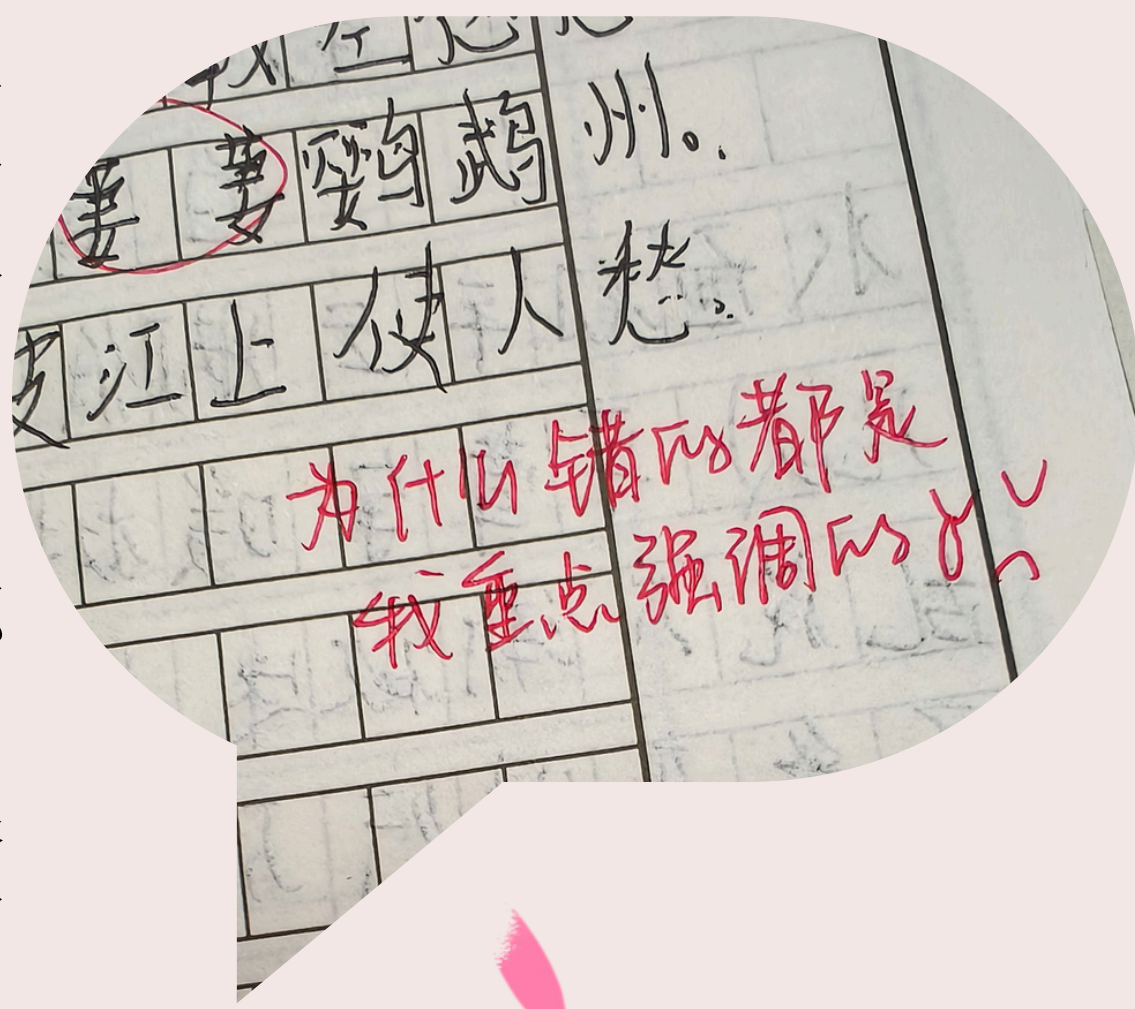 萋萋鹦鹉州。
江上使人愁。
为什么错的都是
我重点强调的